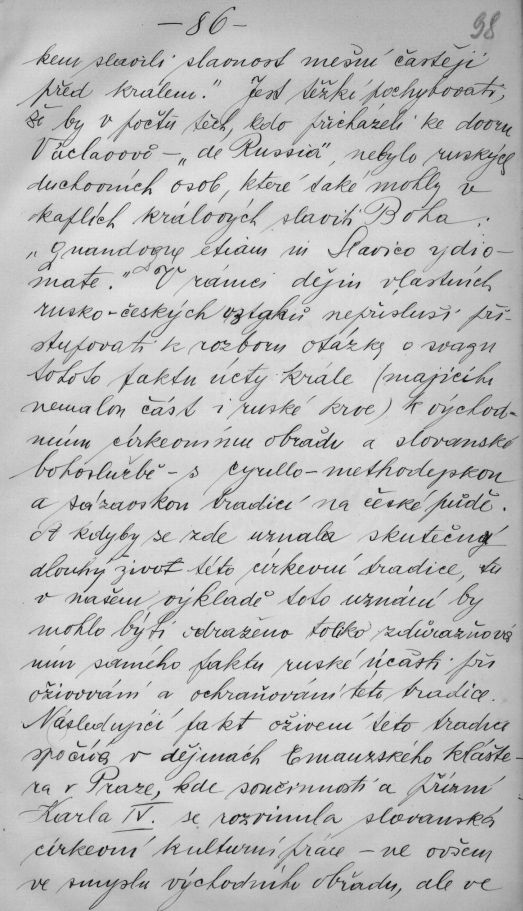 — 86 —
98
kem slavili slavnost mešní častěji
před králem." Jest těžké pochybovati,
že by v počtu těch, kdo přicházeli ke dvoru
Václavovů – „de Russia", nebylo ruských
duchovních osob, které také mohly v
kaplích králových slaviti Boha:
„quandoque etiam in Slavico ydio-
mate." V rámci dějin vlastních
rusko-českých vztahů nepřísluší při-
stupovati k rozboru otázky o svazu
tohoto faktu úcty krále (majícího
nemalou část i ruské krve) k východ-
nímu církevnímu obřadu a slovanské
bohoslužbě – s cyrillo-methodejskou
a sázavskou tradicí na české půdě.
A kdyby se zde uznala skutečný
dlouhý život této církevní tradice, tu
v našem výkladě toto uznání by
mohlo býti odraženo toliko zdůrazňová
ním samého faktu ruské účasti při
oživování a ochraňování této tradice.
Následující fakt oživení této tradice
spočívá v dějinách Emauzského klášte-
ra v Praze, kde součinností a přízní
Karla IV. se rozvinula slovanská
církevní kulturní práce – ne ovšem
ve smyslu východního obřadu, ale ve